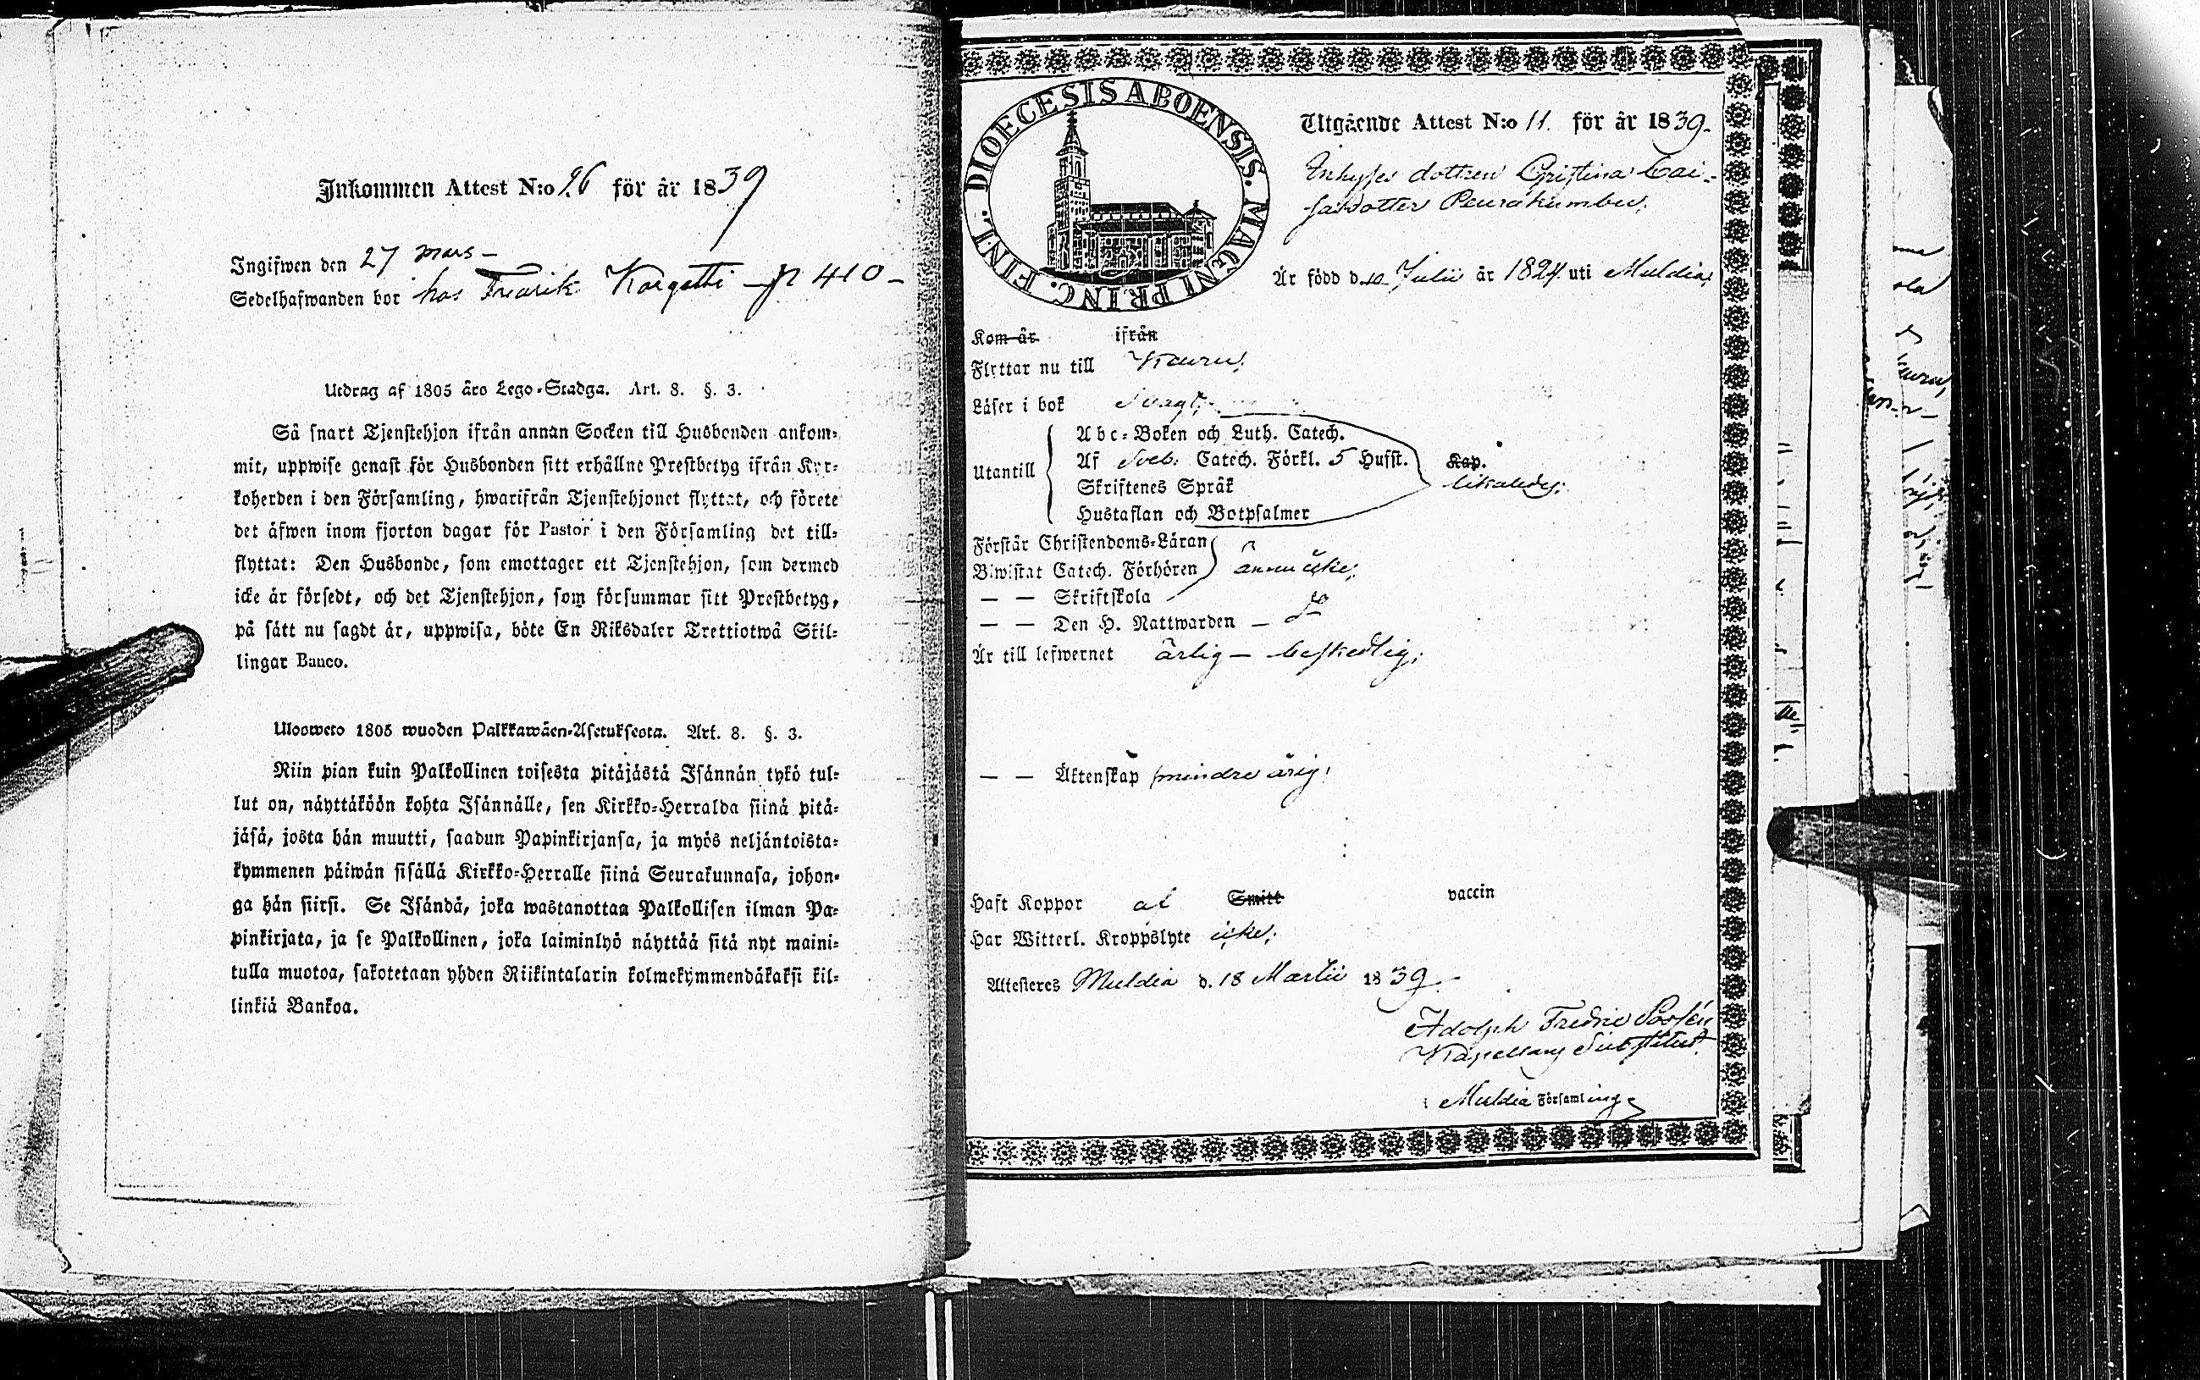 Inkommen Attest N:o 26 för år 1839
Ingifwen den 27 mars –
Sedelhafwanden bor hos Fredrik Korgatti – p 410 –
Utdrag af 1805 års Lego-Stadga. Art. 8. §. 3.
Så snart Tjenstehjon ifrån annan Socken till Husbonden ankom-
mit, uppwise genast för Husbonden sitt erhållne Prestbetyg ifrån Kyr-
koherden i den Församling, hwarifrån Tjenstehjonet flyttat, och förete
det äfwen inom fjorton dagar för Pastor i den Församling det till-
flyttat: Den Husbonde, som emottager ett Tjenstehjon, som dermed
icke är försedt, och det Tjenstehjon, som försummar sitt Prestbetyg,
på sätt nu sagdt är, uppwisa, böte En Riksdaler Trettiotwå Skil-
lingar Banco.
Ulosweto 1805 wuoden Palkkawäen-Asetuksesta. Art. 8. §. 3.
Niin pian kuin Palkollinen toisesta pitäjästä Isännän tykö tul-
lut on, näyttäköön kohta Isännälle, sen Kirkko-Herralda siinä pitä-
jäsä, josta hän muutti, saadun Papinkirjansa, ja myös neljäntoista-
kymmenen päiwän sisällä Kirkko-Herralle siinä Seurakunnasa, johon-
ga hän siirsi. Se Isändä, joka wastanottaa Palkollisen ilman Pa-
pinkirjata, ja se Palkollinen, joka laiminlyö näyttää sitä nyt maini-
tulla muotoa, sakotetaan yhden Riikintalarin kolmekymmendäkaksi kil-
linkiä Bankoa.
DIOECESIS ABOENSIS. MAGNI PRINC. FINL.
Utgående Attest N:o 11. för år 1839.
Inhyses dottren Cristina Cai-
sasdotter Peuråkumbu,
Är född d. 10 Julii år 1824 uti Muldia,
Kom år ifrån
Flyttar nu till Keuru,
Läser i bok svagt,
Utantill
Abc-Boken och Luth. Catech.
Af Sveb. Catech. Förkl. 5 Hufst. Kap.
Skriftenes Språk likaledes;
Hustaflan och Botpsalmer
Förstår Christendoms-Läran
Biwistat Catech. Förhören ännu icke;
— — Skriftskola
— — Den H. Nattwarden – do
Är till lefwernet ärlig – beskedlig;
— — Äktenskap minderårig;
Haft Koppor af Smitt vaccin
Har Witterl. Kroppslyte icke;
Attesteres Muldia d. 18 Martii 1839.
Adolph Fredric
Kapellans Substitut.
Muldia Församling